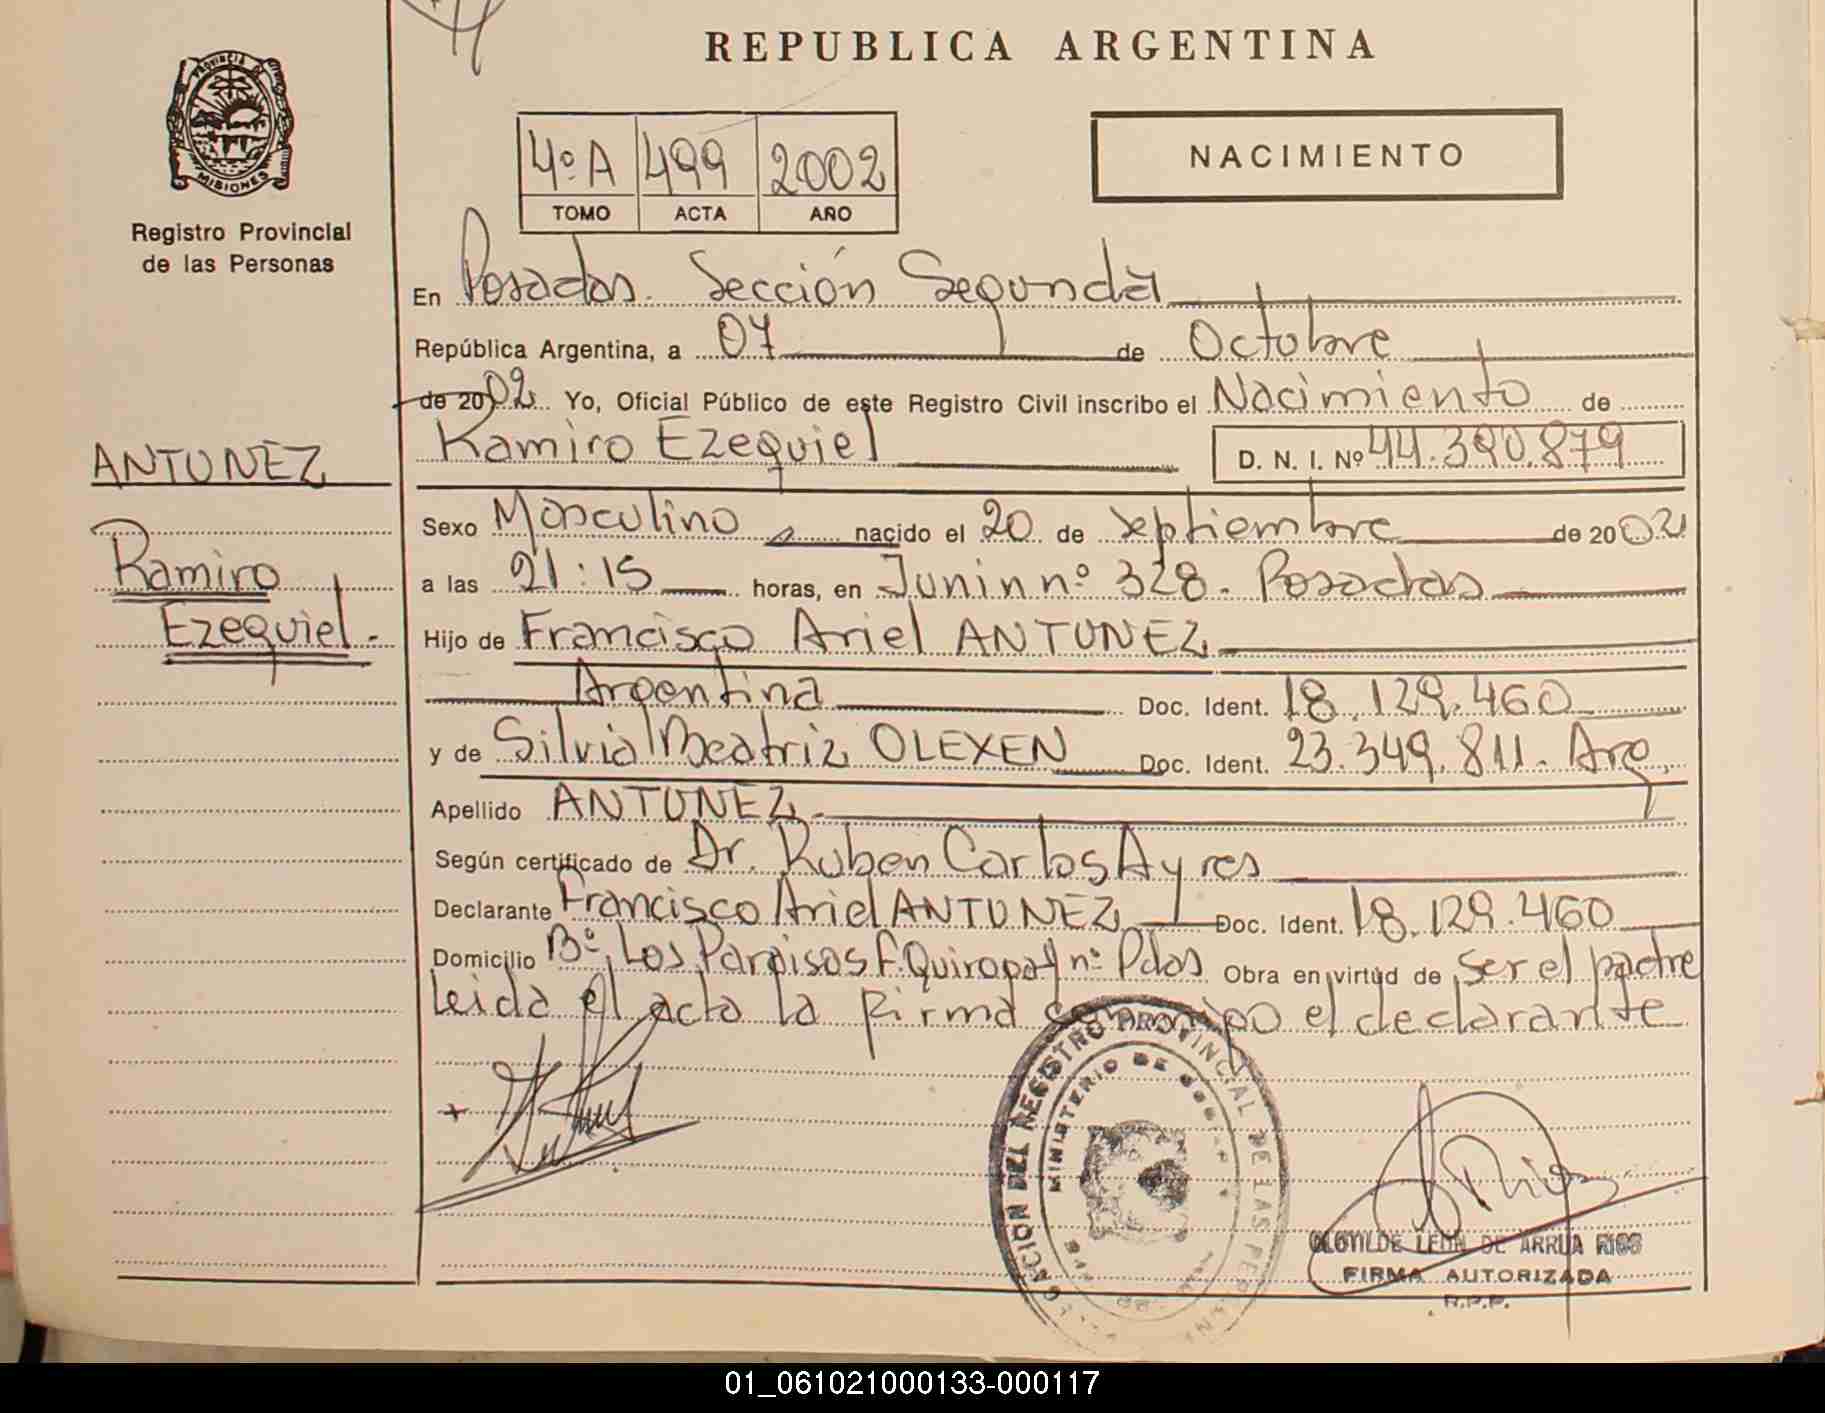 REPUBLICA ARGENTINA
PROVINCIA DE
MISIONES
Registro Provincial
de las Personas
4º A 499 2002
TOMO ACTA AÑO
NACIMIENTO
En Posadas. Sección Segunda
República Argentina, a 07 de Octubre
de 2002 Yo, Oficial Público de este Registro Civil inscribo el Nacimiento de
Ramiro Ezequiel D. N. I. Nº 44.390.879
ANTUNEZ
Ramiro
Ezequiel.-
Sexo Masculino nacido el 20 de septiembre de 2002
a las 21:15 horas, en Junin nº 328. Posadas
Hijo de Francisco Ariel ANTUNEZ
Argentina Doc. Ident. 18.129.460
y de Silvia Beatriz OLEXEN Doc. Ident. 23.349.811. Arg.
Apellido ANTUNEZ.
Según certificado de Dr. Ruben Carlos Ayres
Declarante Francisco Ariel ANTUNEZ Doc. Ident. 18.129.460
Domicilio Bº Los Paraisos F. Quiroga nº Pdas Obra en virtud de ser el padre
Leida el acta la firma conmigo el declarante
DEL REGISTRO PROVINCIAL DE LAS PERSONAS
MINISTERIO DE
CLOTILDE LEON DE ARRUA RIOS
FIRMA AUTORIZADA
R.P.P.
01_061021000133-000117